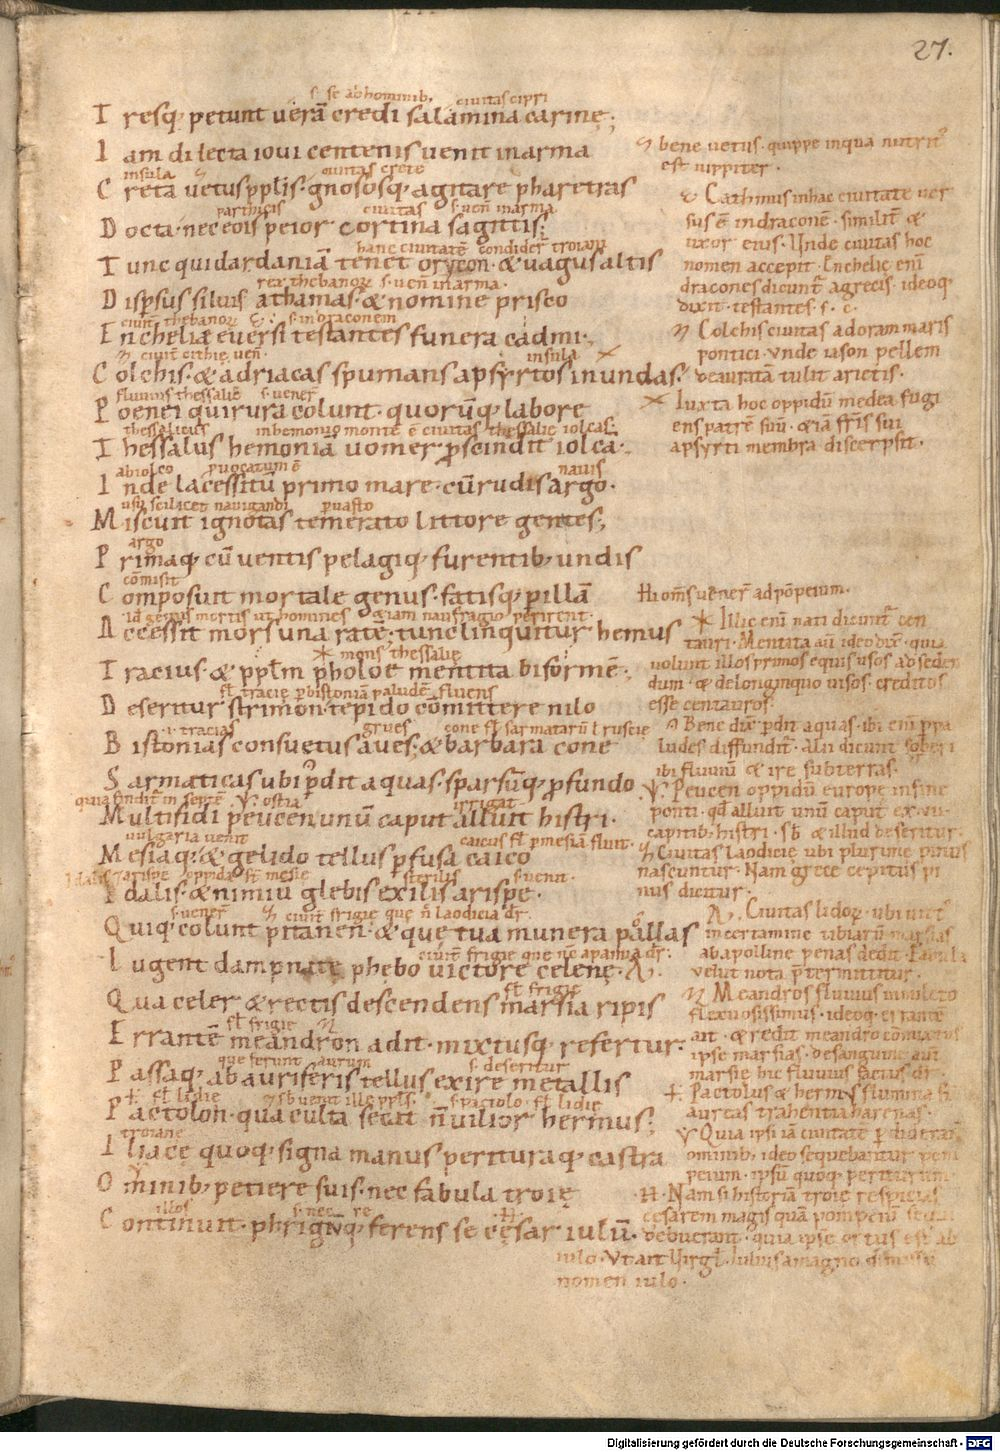 27.
s. se ab hominib; ciuitas cipri
T resq; petunt uerā credi salamina carinę;
I am dilecta ioui centenis uenit in arma
insula ciuitas crete
C reta uetus pplis. gnososq; agitare pharetras
parthicis ciuitas s. ueñ in arma
D octa. nec eois peior cortina sagittis;
hanc ciuitatē condider̄ troiani
T unc qui dardaniā tenet orycon. & uagus altis
rex thebanoꝝ s. ueñ in arma.
D ispsus siluis athamas. & nomine prisco
ciuit̄ thebanoꝝ s. in draconem
E ncheliæ euersi testantes funera cadmi.
ciuit̄ cithię ueñ. insula
C olchis. & adriacas spumans apsyrtos in undas.
fluuius thessalię s. uener̄
P oenei qui rura colunt. quorūq; labore
thessalicus in hemonio monte ē ciuitas thessalię iolcas.
T hessalus hemoniā uomer pscindit iolca.
ab iolco puocatum ē nauis
I nde lacessitū primo mare. cū rudis argo.
usū scilicet nauigandi p uasto
M iscuit ignotas temerato littore gentes;
argo
P rimaq; cū uentis pelagiq; furentib; undis
cōmisit
C omposuit mortale genus. fatisq; p illā
id genus mortis ut homines etiam naufragio perirent.
A ccessit mors una ratē; tunc linquitur hemus
mons thessalię
T racius. & pplm pholoe mentita biformē.
fl̄. tracię p bistoniā paludē fluens
D eseritur strimon tepido cōmittere nilo
.i. tracias grues cone fl̄ sarmatarū l ruscie
B istonias consuetus aues. & barbara cone
S armaticas ubi pdit aquas. sparsūq; pfundo
quia findit̄ in septē ostia irrigat
M ultifidi peucen unū caput alluit histri.
uulgaria uenit caicus fl̄ p mesiā fluit.
M esiaq; & gelido tellus pfusa caico
Idalis 7 arispe oppida st̄ mesię sterilis s. uenit.
I dalis. & nimiu glebis exilis arispe.
s. uener̄ ciuit̄ frigię que ñ laodicia dr̄.
Q uiq; colunt pitanen. & quę tua munera pallas
ciuit̄ frigię que nc̄ apamia dr̄.
L ugent dampnatę phebo uictore celenę.
fl̄. frigię
Q ua celer & rectis descendens marsia ripis
fl̄ frigię
E rrantē meandron adit. mixtusq; refertur.
que ferunt aurum s. deseritur
P assaq; ab auriferis tellus exire metallis
fl̄ lidię s. pactolo fl̄ lidię
P actolon. qua culta secat ñ uilior hermus;
troiane
I liacę quoq; signa manus perituraq; castra
O minib; petiere suis. nec fabula troię
illos s. nec re
C ontinuit. phrigiiq; ferens se cęsar iulū.
bene uetus. quippe in qua nutrit̄
est iuppiter.
Cathmus in hac ciuitate uer
sus ē in draconē. similit̄ &
uxor eius. Unde ciuitas hoc
nomen accepit. Enchelię enī
dracones dicunt̄ a grecis. ideoq;
dixit. testantes. f. c.
Colchis ciuitas ad oram maris
pontici. unde iason pellem
deauratā tulit arietis.
Iuxta hoc oppidū medea fugi
ens patrē suū. etiā fr̄is sui
apsyrti membra discerpsit.
Hi om̄s uener̄ ad pōpeium.
Illic enī nati dicunt̄ cen
tauri. Mentita aū ideo dix̄. quia
uolunt illos primos equis usos ad seden
dum. & de longinquo uisos. creditos
esse centauros.
Bene dix̄ pdit aquas. ibi enī p pa
ludes diffundit̄. Alii dicunt soberi
ibi fluuiū & ire sub terras.
Peucen oppidū europe in fine
ponti. qd̄ alluit unū caput ex .vii.
capitib; histri. sb̄ & illud deseritur.
Ciuitas laodicię ubi plurime pinus
nascuntur. Nam grece cepitus pi
nus dicitur.
Ciuitas lidoꝝ. ubi uict̄
in certamine tibiarū marsias
ab apolline penas dedit. Fabula
uelut nota p̄termittitur.
Meandros fluuius
flexuosissimus. ideoq; ei errantē
ait. & redit meandro cōmixtus
ipse marsias. de sanguine aūt
marsię hic fluuius factus dr̄.
Pactolus & hermus flumina st̄
aureas trahentia harenas.
Quia ipsi iā ciuitatē pdiderant
ominib; ideo sequebantur pom
peium. ipsū quoq; periturum.
Nam si historiā troię respicias
cesarem magis quā pompeiū sequi
debuerant. quia ipse ortus est ab
iulo. Ut ait Uirgl̄. Iulius a magno dimissū
nomen iulo.
Digitalisierung gefördert durch die Deutsche Forschungsgemeinschaft - DFG